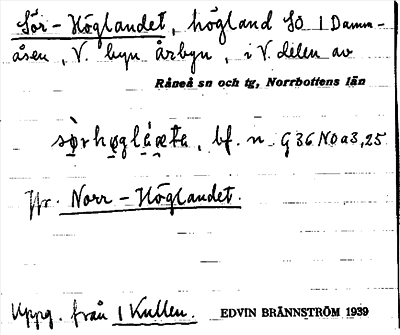 Sör-Höglandet, högland SO 1 Damm-
åsen, V. byn Årbyn, i V. delen av
Råneå sn och tg, Norrbottens län
bf. n. G36NOa3,25
Jfr. Norr-Höglandet.
Uppg. från 1 Kullen. EDVIN BRÄNNSTRÖM 1939